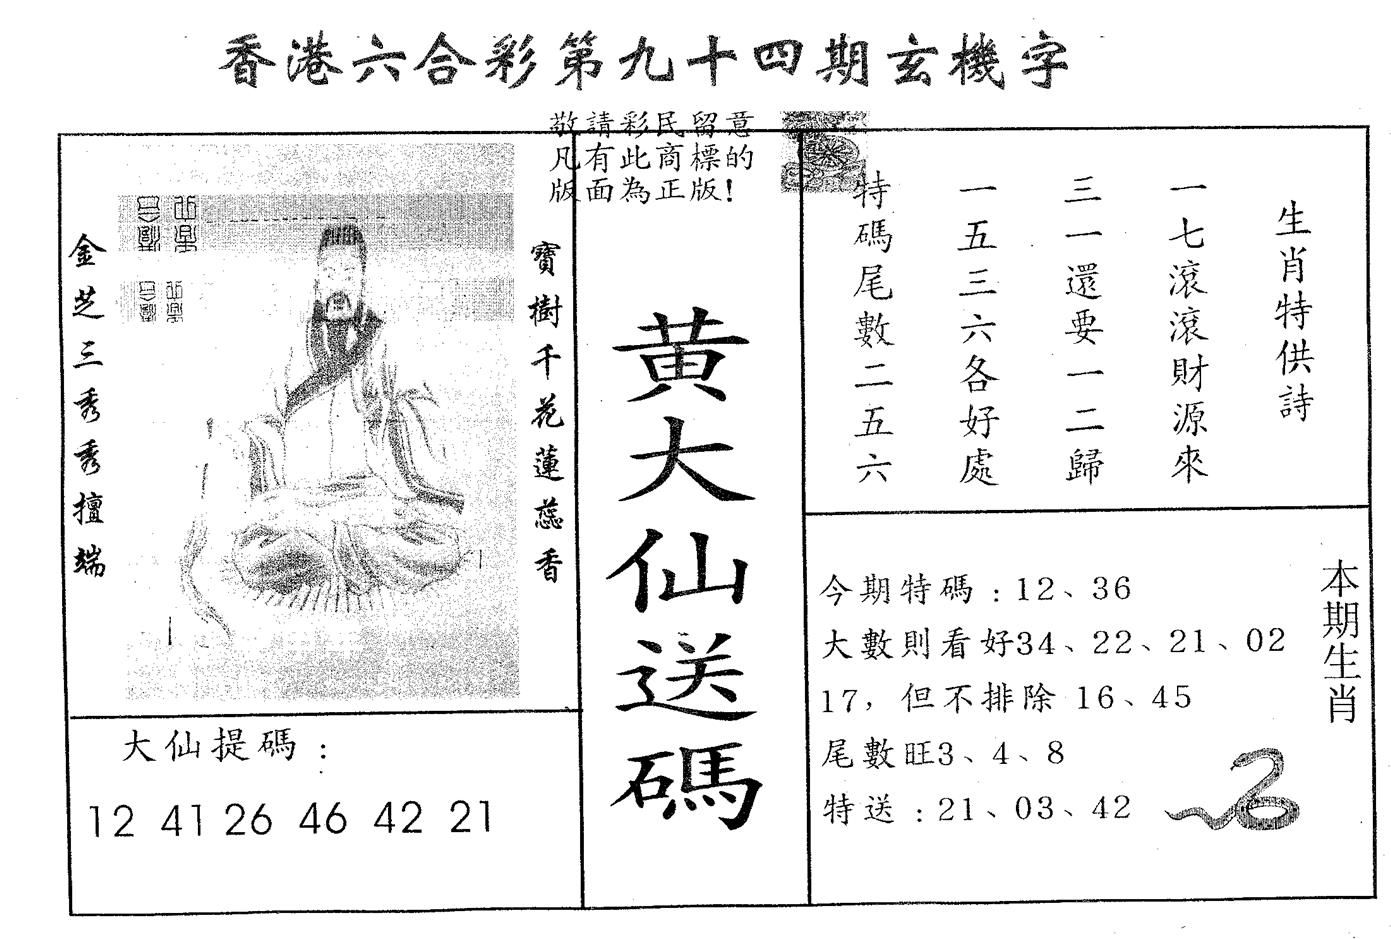 香港六合彩第九十四期玄機字
敬請彩民留意
凡有此商標的
版面為正版!
寶樹千花蓮蕊香
金芝三秀秀擅端
大仙提碼：
12 41 26 46 42 21
黄大仙送碼
生肖特供詩
一七滾滾財源來
三一還要一二歸
一五三六各好處
特碼尾數二五六
本期生肖
今期特碼：12、36
大數則看好34、22、21、02
17，但不排除 16、45
尾數旺3、4、8
特送：21、03、42